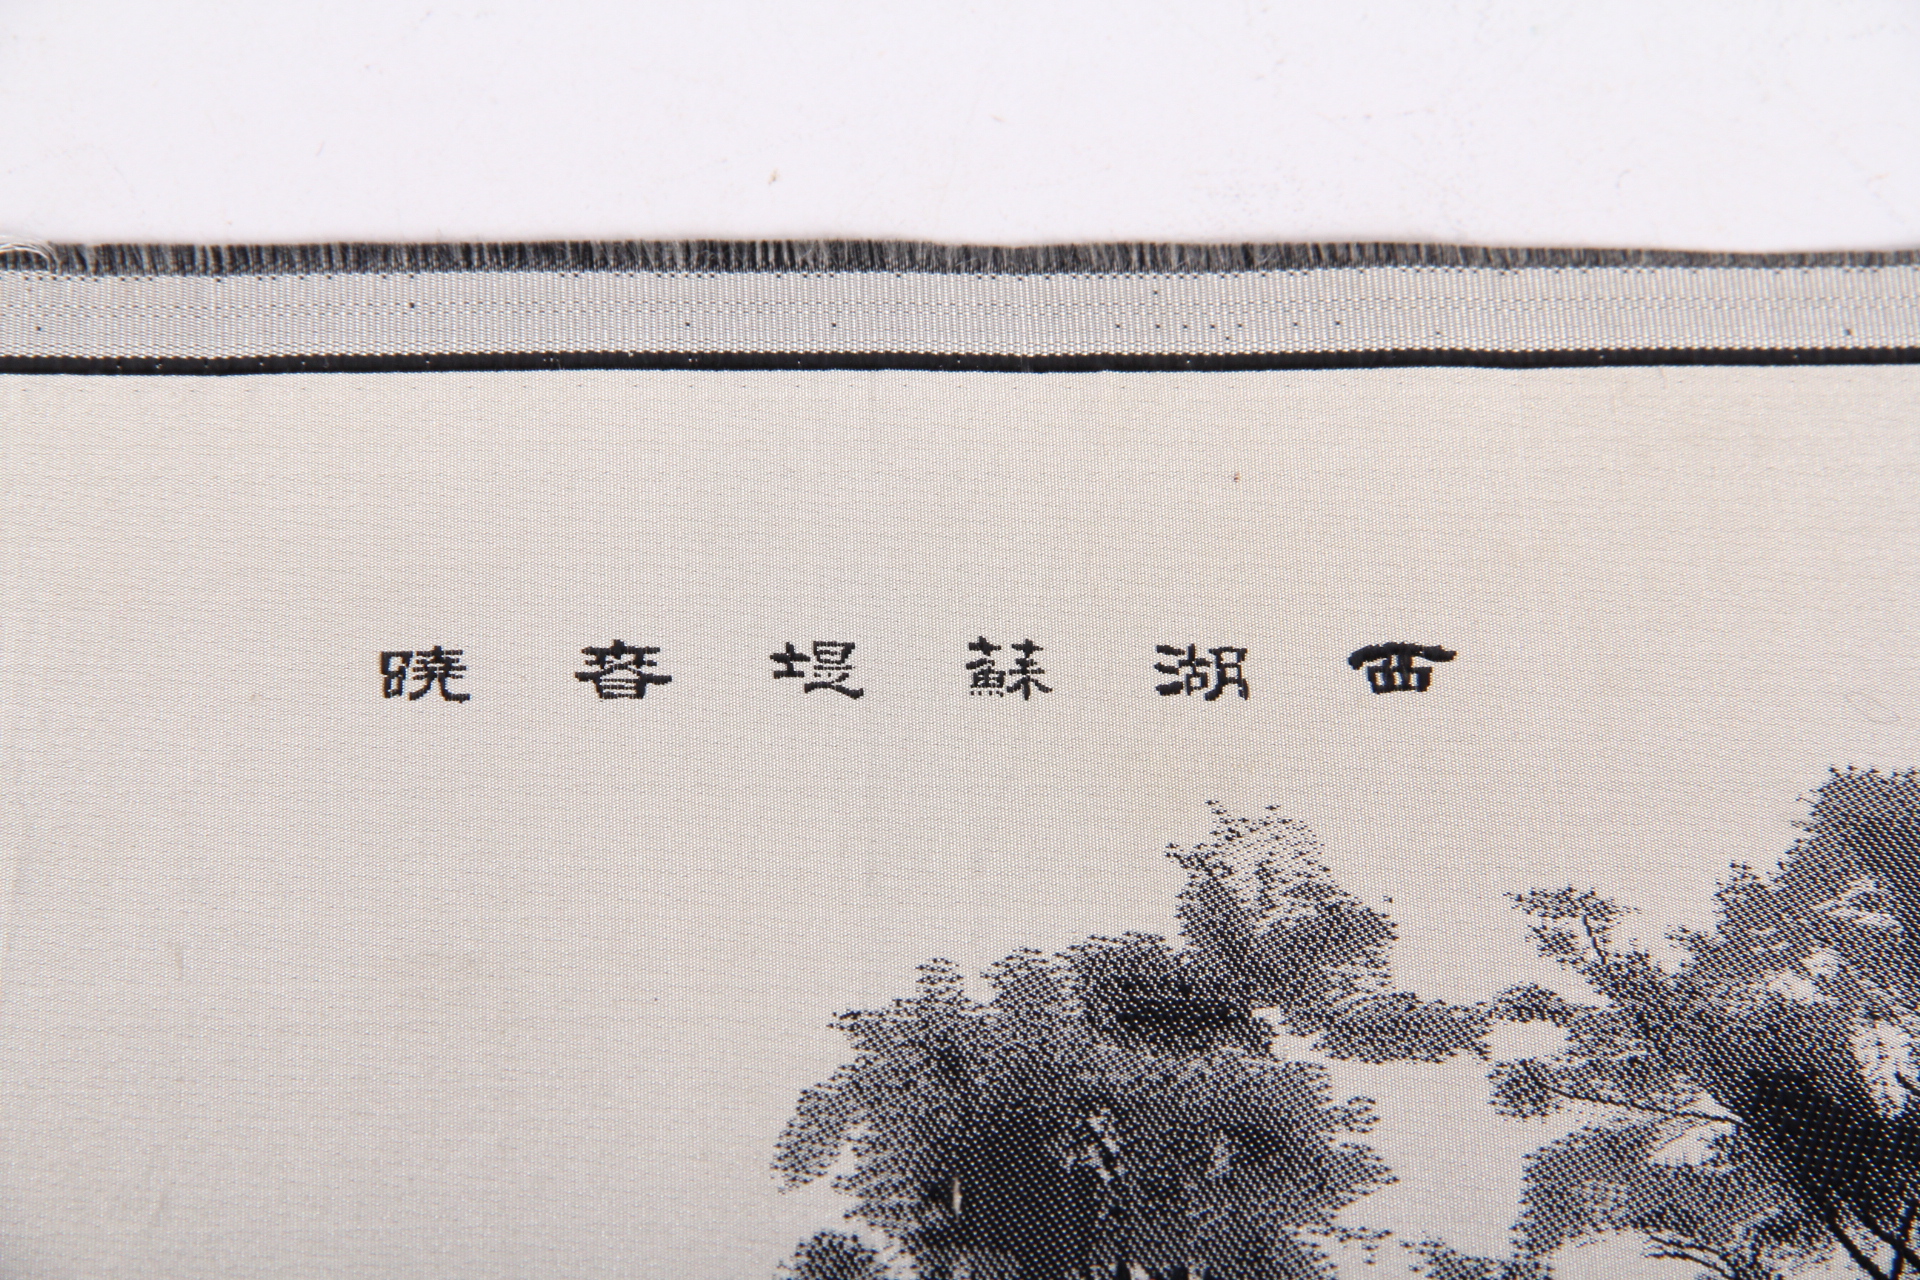 西湖蘇堤春曉